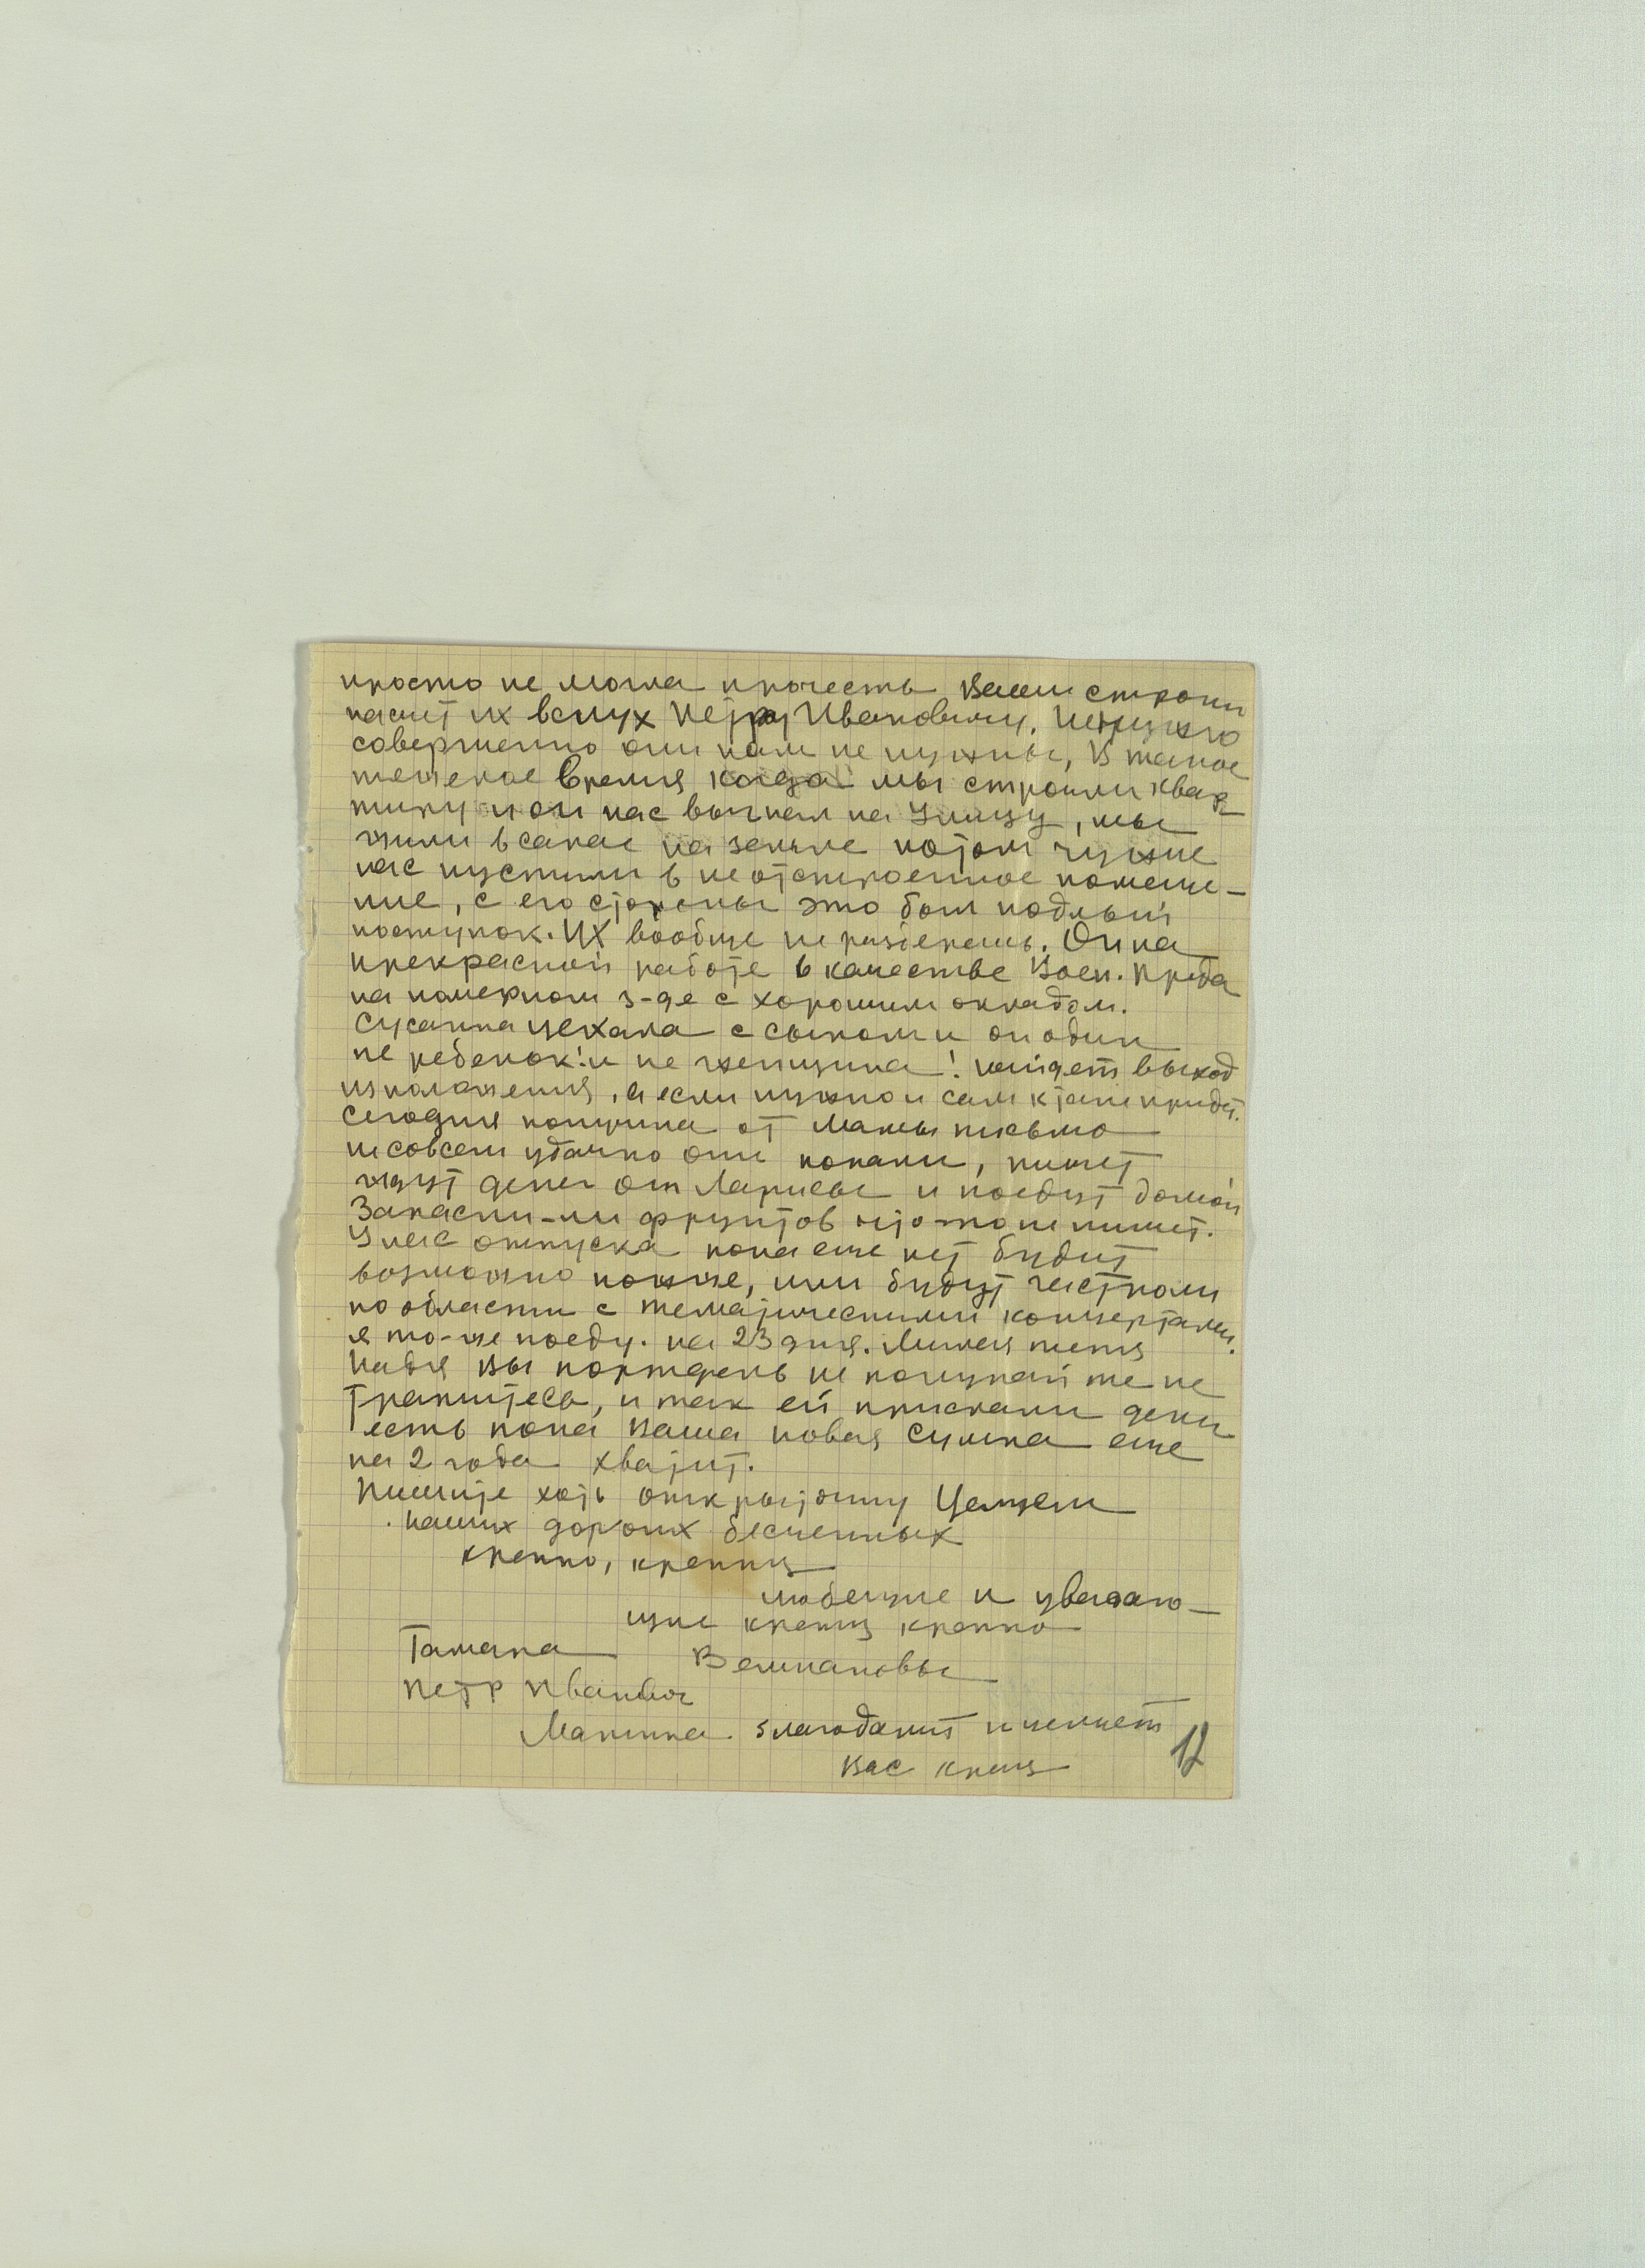 просто не могла прочесть Ваши строки
насчет их вслух Петру Ивановичу. Ненужно
совершенно они нам не нужны, в такое
тяжелое время когда мы строили квар
тиру и он нас выгнал на улицу, мы
жили в сарае на земле потом чужие
нас пустили в не отстроенное помеще-
ние, с его стороны это был подлый
поступок. Их вообще не разберешь. Он на
прекрасной работе в качестве Воен. Преда
на номерном з-де с хорошим окладом.
Сусанна уехала с сыном и он один
не ребенок! и не женщина! найдет выход
из положения, а если нужно и сам к придет.
Сегодня получила от Мамы письмо
не совсем удачно они попали, пишет
ждут денег от Ларисы и поедут домой
Запасли-ли фруктов что-то не пишет.
У нас отпуска пока еще нет будит
возможно позже, или будут гастроли
по области с тематическими концертами.
я то-же поеду. на 23 дня. Милая тетя
Надя Вы портфель не покупайте не
тратитесь, и так ей прислали деки
есть пока Ваша новая сумка еще
на 2 года хватит.
Пишите хоть открыточку Целуем
наших дорогих бесценных
крепко, крепко
любещие и уважаю-
щие крепко крепко
Тамара Великановы
Петр Иванович
Маринка благодарит и целует
Вас крепко
12